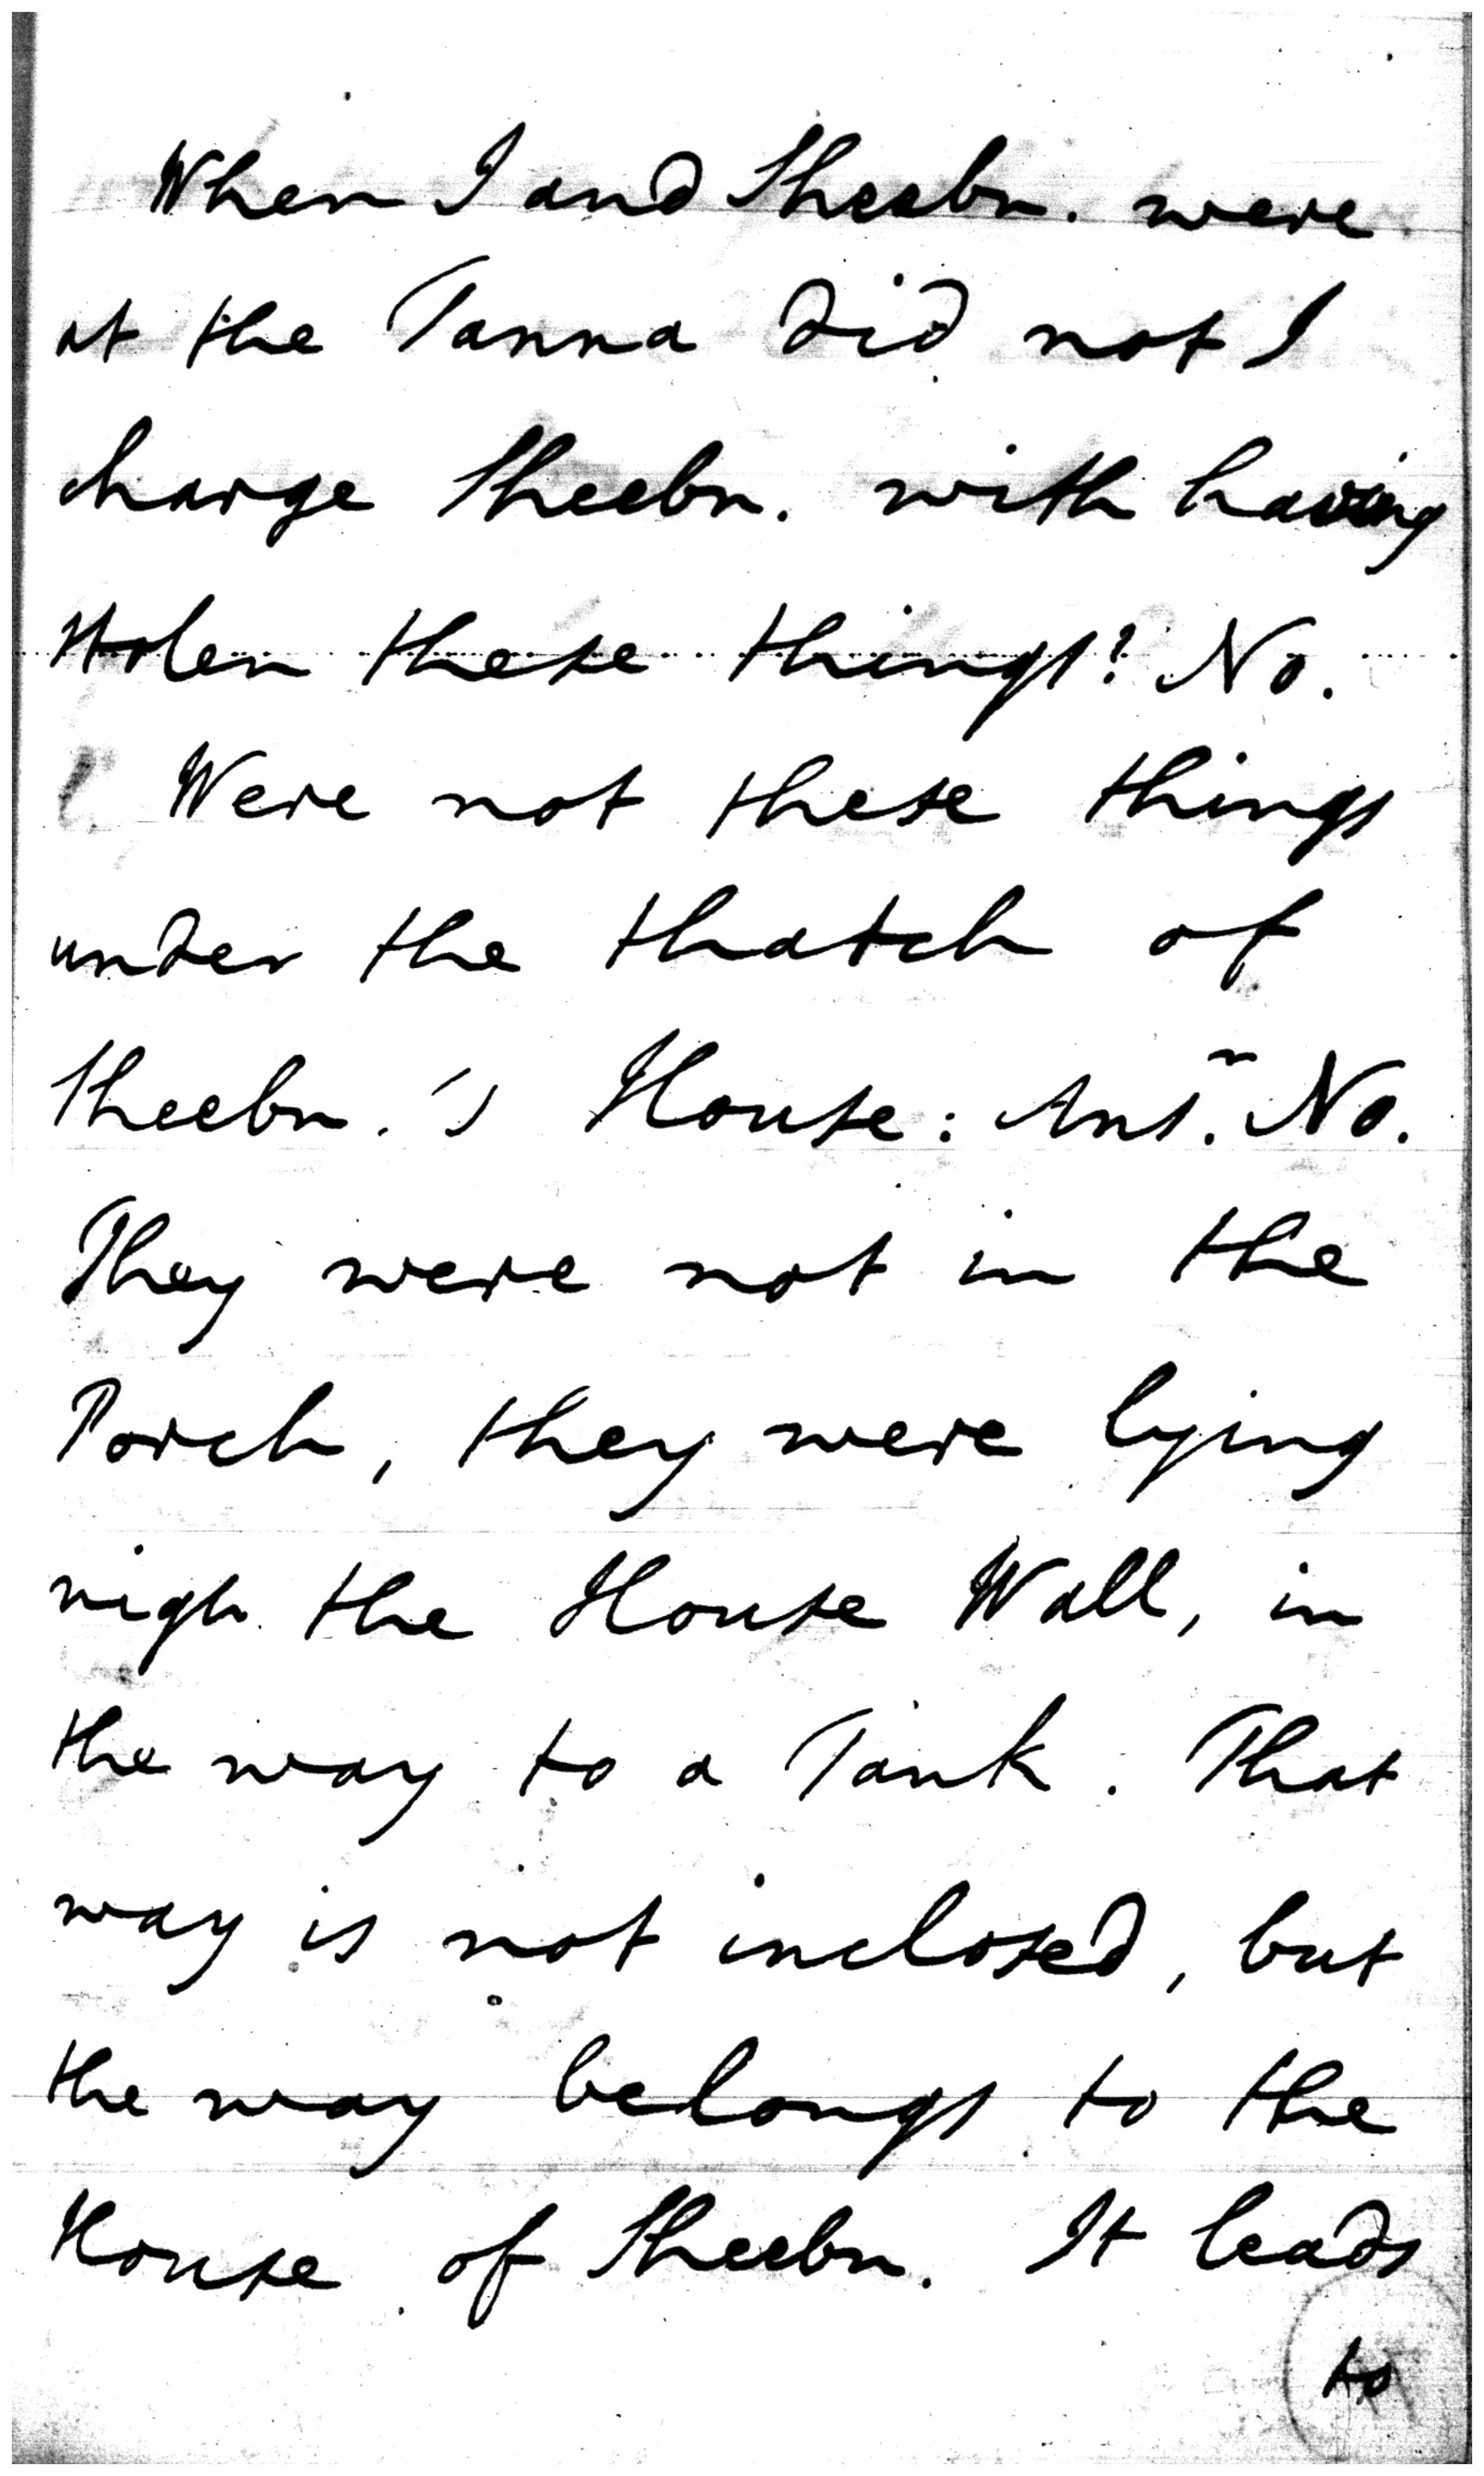 When I and Sheebn. were
at the Tanna did not I
charge Sheebn. with having
stolen these things? No.
Were not these things
under the thatch of
Sheebn.'s House: Ansr. No.
They were not in the
Porch, they were lying
nigh the House Wall, in
the way to a Tank. That
way is not inclosed, but
the way belongs to the
House of Sheebn. It leads
to